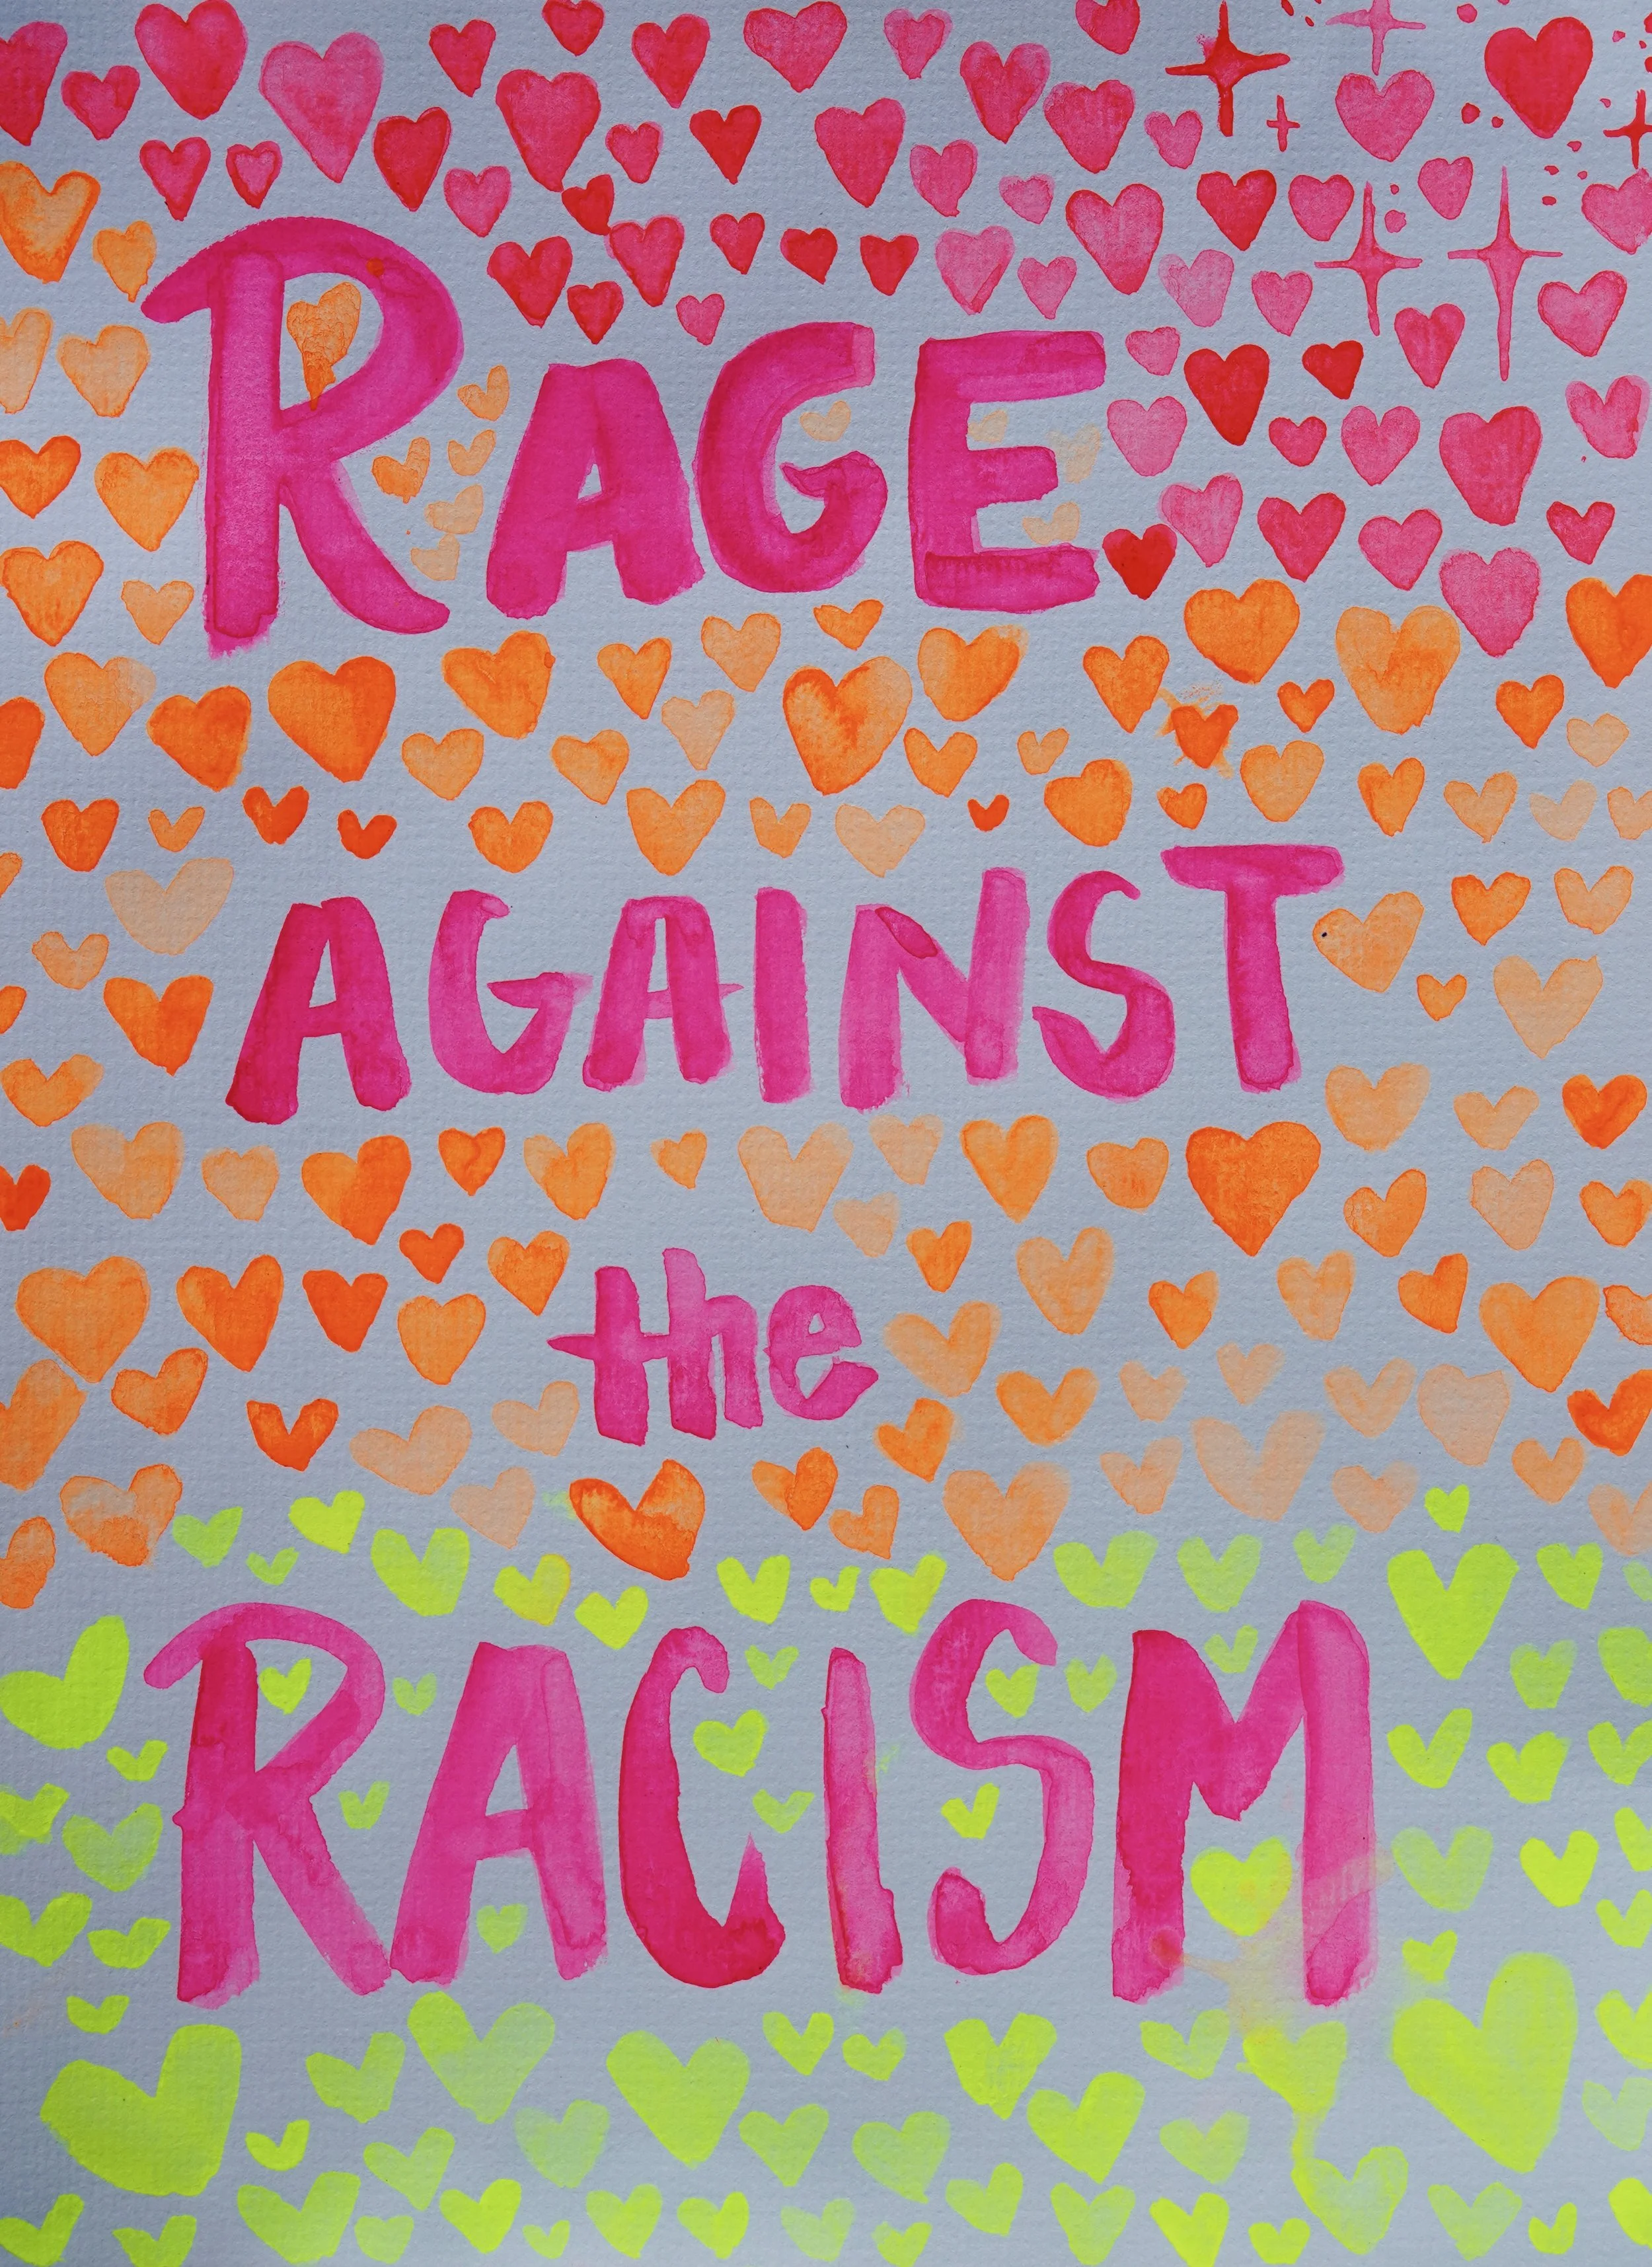 RAGE
AGAINST
the
RACISM